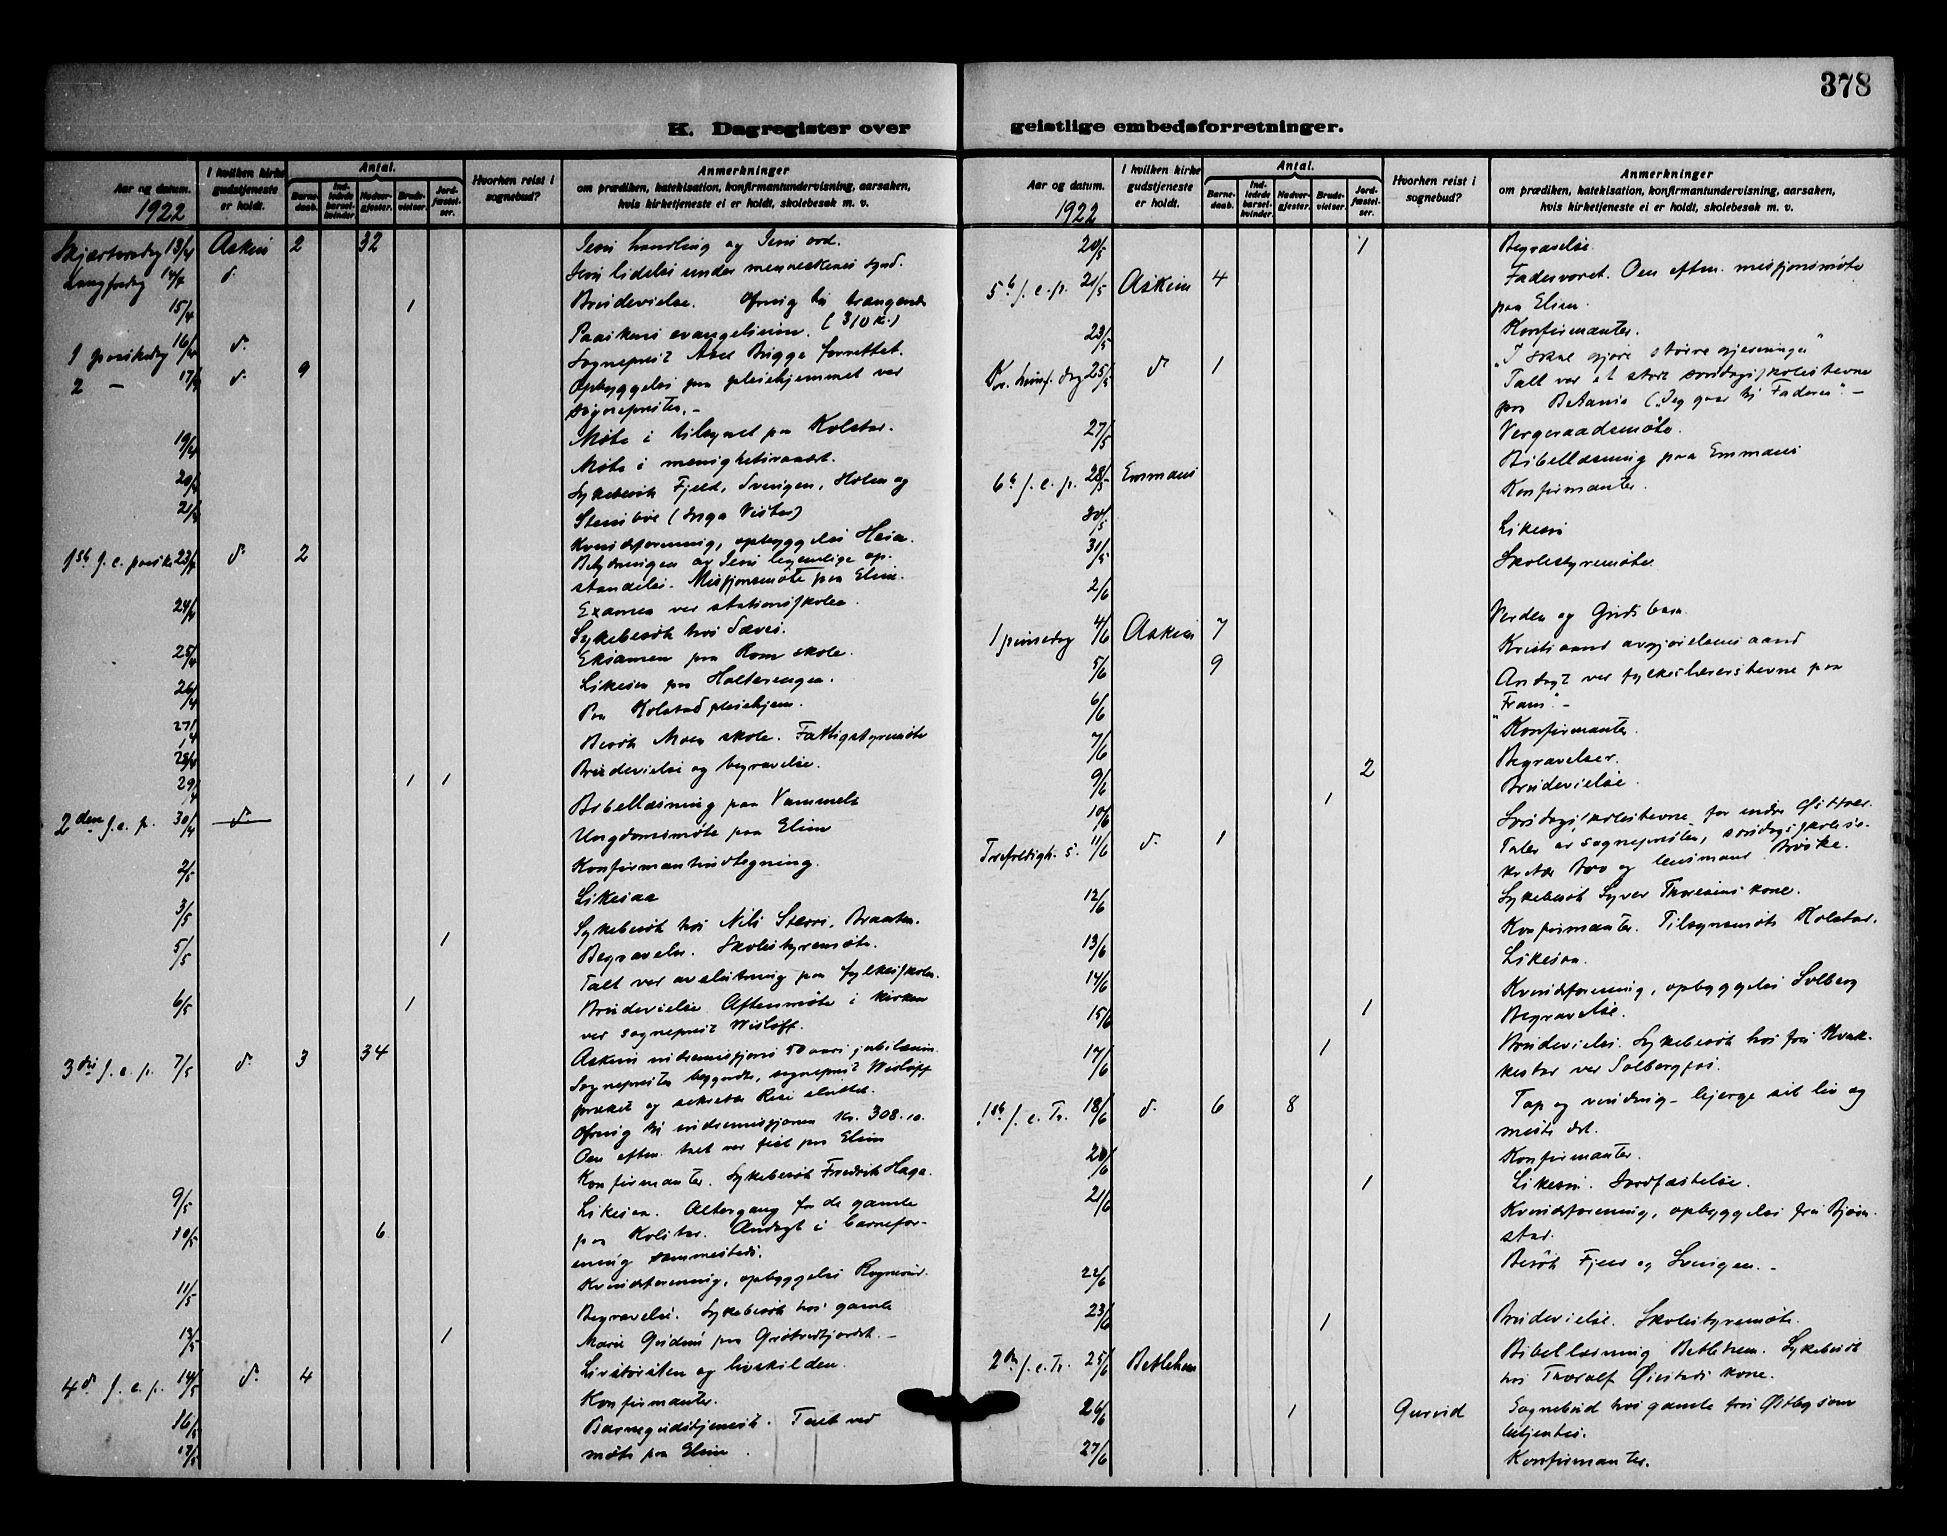 378
K. Dagregister over
geistlige embedsforretninger.
Aar og datum.
1922
I hvilken kirke gudstjeneste er holdt.
Antal.
Barnedaab.
Indledede barselkvinder.
Nadvergjester.
Brudevielser.
Jordfæstelser.
Hvorhen reist i sognebud?
Anmerkninger
om prædiken, katekisation, konfirmantundervisning, aarsaken,
hvis kirketjeneste ei er holdt, skolebesøk m. v.
Skjærtorsdag 13/4 Askim 2 32 Jesu handling og Jesu ord.
Langfredag 14/4 d. Jesu lidelse under menneskenes synd.
15/4 1 Brudevielse. Ofring til trængende
(310 kr.)
1 paaskedag 16/4 d. Paaskens evangelium.
2 — 17/4 d. 9 Sogneprest Brigge forrettet.
Opbyggelse paa pleiehjemmet ved
sognepresten.-
19/4 Møte i tilsynet paa Kolstad.
20/4 Møte i menighetsraadet.
21/4 Sykebesøk Fjeld, Svingen, Holen og
Kvindeforening, opbyggelse Heia.
1ste s. e. paaske 23/4 d. 2 Betydningen av Jesu legemlige op-
standelse. Misjonsmøte paa Elim.
24/4 Examen ved stationsskolen.
Sykebesøk hos
25/4 Eksamen paa Rom skole.
26/4 Likesaa paa
27/4 Paa Kolstad pleiehjem.
28/4 Besøk Moen skole. Fattigstyremøte
29/4 1 1 Brudevielse og begravelse.
2den s. e. p. 30/4 d. Bibellæsning paa Vammeli
Ungdomsmøte paa Elim
2/5 Konfirmantindtegning.
3/5 Likesaa
Sykebesøk hos Nils Braaten.
5/5 1 Begravelse. Skolestyremøte.
Talt ved avslutning paa fylkesskolen.
6/5 1 Brudevielse Aftenmøte i kirken
ved sogneprest Wisløff.
3die s. e. p. 7/5 d. 3 34 Askim indremisjons 50 aars jubilæum.
Sognepresten begyndte, sogneprest Wisløff
præket og sekretær sluttet.
Ofring til indremisjonen kr. 308.10.
Om eftm. talt ved fest paa Elim
9/5 Konfirmanter. Sykebesøk Fredrik Haga.
10/5 6 Likesaa. Altergang for de gamle
paa Kolstad. Andagt i barnefor-
ening sammesteds.
11/5 Kvindeforening, opbyggelse
13/5 1 Begravelse. Sykebesøk hos gamle
Marie paa
4de s. e. p. 14/5 d. 4 Livstørsten og livskilden.
16/5 Konfirmanter.
17/5 Barnegudstjeneste. Talt ved
møte paa Elim.
Aar og datum.
1922
I hvilken kirke gudstjeneste er holdt.
Antal.
Barnedaab.
Indledede barselkvinder.
Nadvergjester.
Brudevielser.
Jordfæstelser.
Hvorhen reist i sognebud?
Anmerkninger
om prædiken, katekisation, konfirmantundervisning, aarsaken,
hvis kirketjeneste ei er holdt, skolebesøk m. v.
20/5 1 Begravelse.
5te s. e. p. 21/5 Askim 4 Fadervoret. Om eftm. misjonsmøte
paa Elim.
23/5 Konfirmanter.
Kr. himf. dag 25/5 d. 1 "I skal gjøre større gjerninger"
Talt ved et stort søndagsskolestevne
paa Betania ("Jeg gaar til Faderen".—
27/5 Vergeraadsmøte.
6te s. e. p. 28/5 Emmaus Bibellæsning paa Emmaus
30/5 Konfirmanter.
31/5 Likesaa
2/6 Skolestyremøte
1 pinsedag 4/6 Askim 7 Verden og Guds barn.
5/6 9 Kristi aand avgjørelsens aand
6/6 Andagt ved fylkeslærerstevne paa
"Fram".—
7/6 Konfirmanter.
9/6 2 Begravelser.
10/6 1 Brudevielse.
Trefoldigh. s. 11/6 d. 1 Søndagsskolestevne for indre Østfold.
Taler av sognepresten, søndagsskolese-
kretær og lensmand
12/6 Sykebesøk Syver kone.
13/6 Konfirmanter. Tilsynsmøte Kolstad.
14/6 Likesaa.
15/6 1 Kvindeforening, opbyggelse Solberg
Begravelse.
17/6 1 Brudevielse. Sykebesøk hos fru
ved Solbergfos.
1ste s. e. Tr. 18/6 d. 6 8 Tap og vinding - bjerge sit liv og
miste det.
20/6 Konfirmanter.
21/6 1 Likesaa. Jordfæstelse.
Kvindeforening, opbyggelse fru Bjørn-
stad.
22/6 Besøk Fjeld og Svingen.-
23/6 1 Brudevielse. Skolestyremøte.
2den s. e. Tr. 25/6 Betlehem Bibellæsning Betlehem. Sykebesøk
hos Thoralf kone.
26/6 1 Gursrud Sognebud hos gamle fru Østby som
betjentes.
27/6 Konfirmanter.